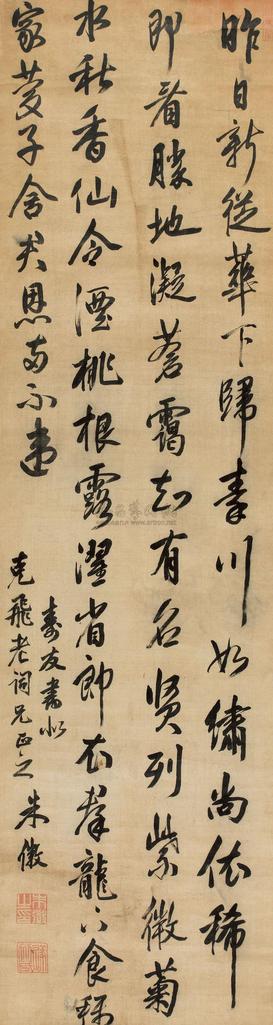 昨日新從華下歸秦川如繡尚依稀
即看勝地凝蒼靄知有名賢列紫微菊
水秋香仙令酒桃根露濯省郎衣龍下食
家慶子舍天恩兩不違
壽友書似
克飛老詞兄正之 朱徽